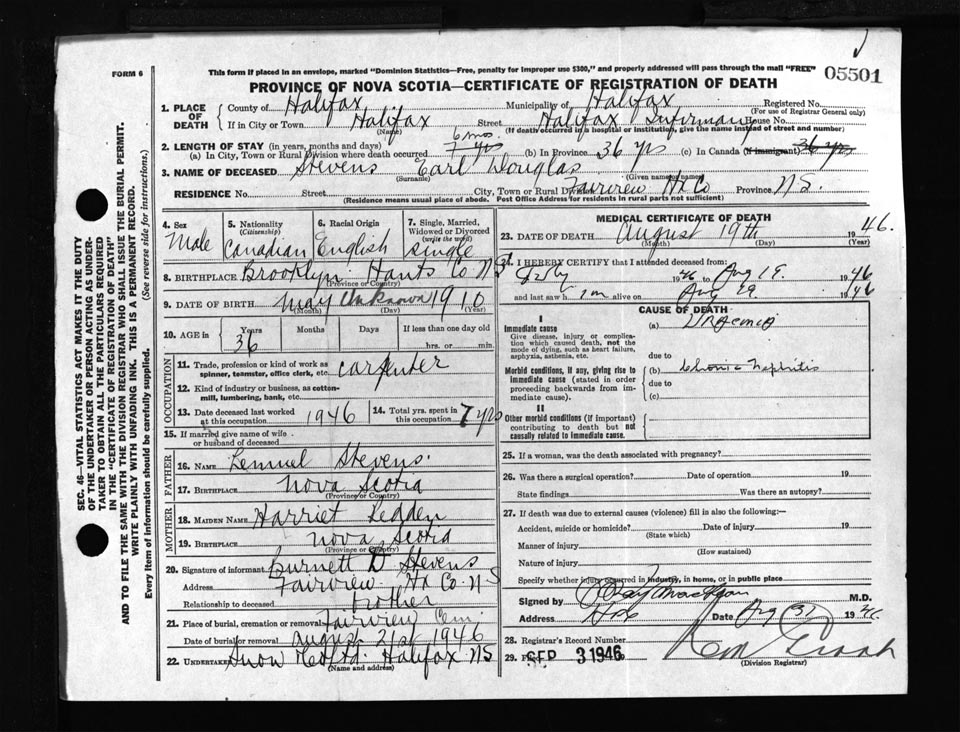 FORM 6
This form if placed in an envelope, marked "Dominion Statistics—Free, penalty for improper use $300," and properly addressed will pass through the mail "FREE"
05501
PROVINCE OF NOVA SCOTIA—CERTIFICATE OF REGISTRATION OF DEATH
1. PLACE OF DEATH
County of Halifax Municipality of Halifax Registered No.
(For use of Registrar General only)
If in City or Town Halifax Street Halifax Infirmary House No.
(Name) (If death occurred in a hospital or institution, give the name instead of street and number)
2. LENGTH OF STAY (in years, months and days) 6 mos.
(a) In City, Town or Rural Division where death occurred 7 yrs (b) In Province 36 yrs (c) In Canada (if immigrant) 36 yrs
3. NAME OF DECEASED Stevens Earl Douglas
(Surname) (Given names)
RESIDENCE No. Street City, Town or Rural Division Fairview Hx Co Province N.S.
(Residence means usual place of abode. Post Office Address for residents in rural parts not sufficient)
4. Sex Male
5. Nationality (Citizenship) Canadian
6. Racial Origin English
7. Single, Married, Widowed or Divorced (write the word) single
8. BIRTHPLACE Brooklyn Hants Co N.S.
(Province or Country)
9. DATE OF BIRTH May Unknown 1910
(Month) (Day) (Year)
10. AGE in Years Months Days If less than one day old
36 hrs. or min.
OCCUPATION
11. Trade, profession or kind of work as spinner, teamster, office clerk, etc. carpenter
12. Kind of industry or business, as cotton-mill, lumbering, bank, etc.
13. Date deceased last worked at this occupation 1946
14. Total yrs. spent in this occupation 7 yrs
15. If married give name of wife or husband of deceased
FATHER
16. NAME Lemuel Stevens.
17. BIRTHPLACE Nova Scotia
(Province or Country)
MOTHER
18. MAIDEN NAME Harriet
19. BIRTHPLACE Nova Scotia
(Province or Country)
20. Signature of informant Burnett D Stevens
Address Fairview Hx Co N-S
Relationship to deceased brother
21. Place of burial, cremation or removal Fairview Cem
Date of burial or removal August 21st 1946
22. UNDERTAKER Snow Halifax NS
(Name and address)
MEDICAL CERTIFICATE OF DEATH
23. DATE OF DEATH August 19th 1946.
(Month) (Day) (Year)
24. I HEREBY CERTIFY that I attended deceased from:
1946 to Aug 19. 1946
and last saw h im alive on Aug 19. 1946
CAUSE OF DEATH
I
Immediate cause
Give disease, injury or complication which caused death, not the mode of dying, such as heart failure, asphyxia, asthenia, etc.
(a) Uraemia
due to
Morbid conditions, if any, giving rise to immediate cause (stated in order proceeding backwards from immediate cause).
(b) Chronic Nephritis
due to
(c)
II
Other morbid conditions (if important) contributing to death but not causally related to immediate cause.
25. If a woman, was the death associated with pregnancy?
26. Was there a surgical operation? Date of operation 19
State findings Was there an autopsy?
27. If death was due to external causes (violence) fill in also the following:—
Accident, suicide or homicide? Date of injury 19
(State which)
Manner of injury
(How sustained)
Nature of injury
Specify whether injury occurred in industry, in home, or in public place
Signed by M.D.
Address Date 1946.
28. Registrar's Record Number
29. SEP 3 1946
(Division Registrar)
SEC. 46—VITAL STATISTICS ACT MAKES IT THE DUTY
OF THE UNDERTAKER OR PERSON ACTING AS UNDER-
TAKER TO OBTAIN ALL THE PARTICULARS REQUIRED
IN THE "CERTIFICATE OF REGISTRATION OF DEATH"
AND TO FILE THE SAME WITH THE DIVISION REGISTRAR WHO SHALL ISSUE THE BURIAL PERMIT.
WRITE PLAINLY WITH UNFADING INK. THIS IS A PERMANENT RECORD.
Every item of information should be carefully supplied. (See reverse side for instructions.)